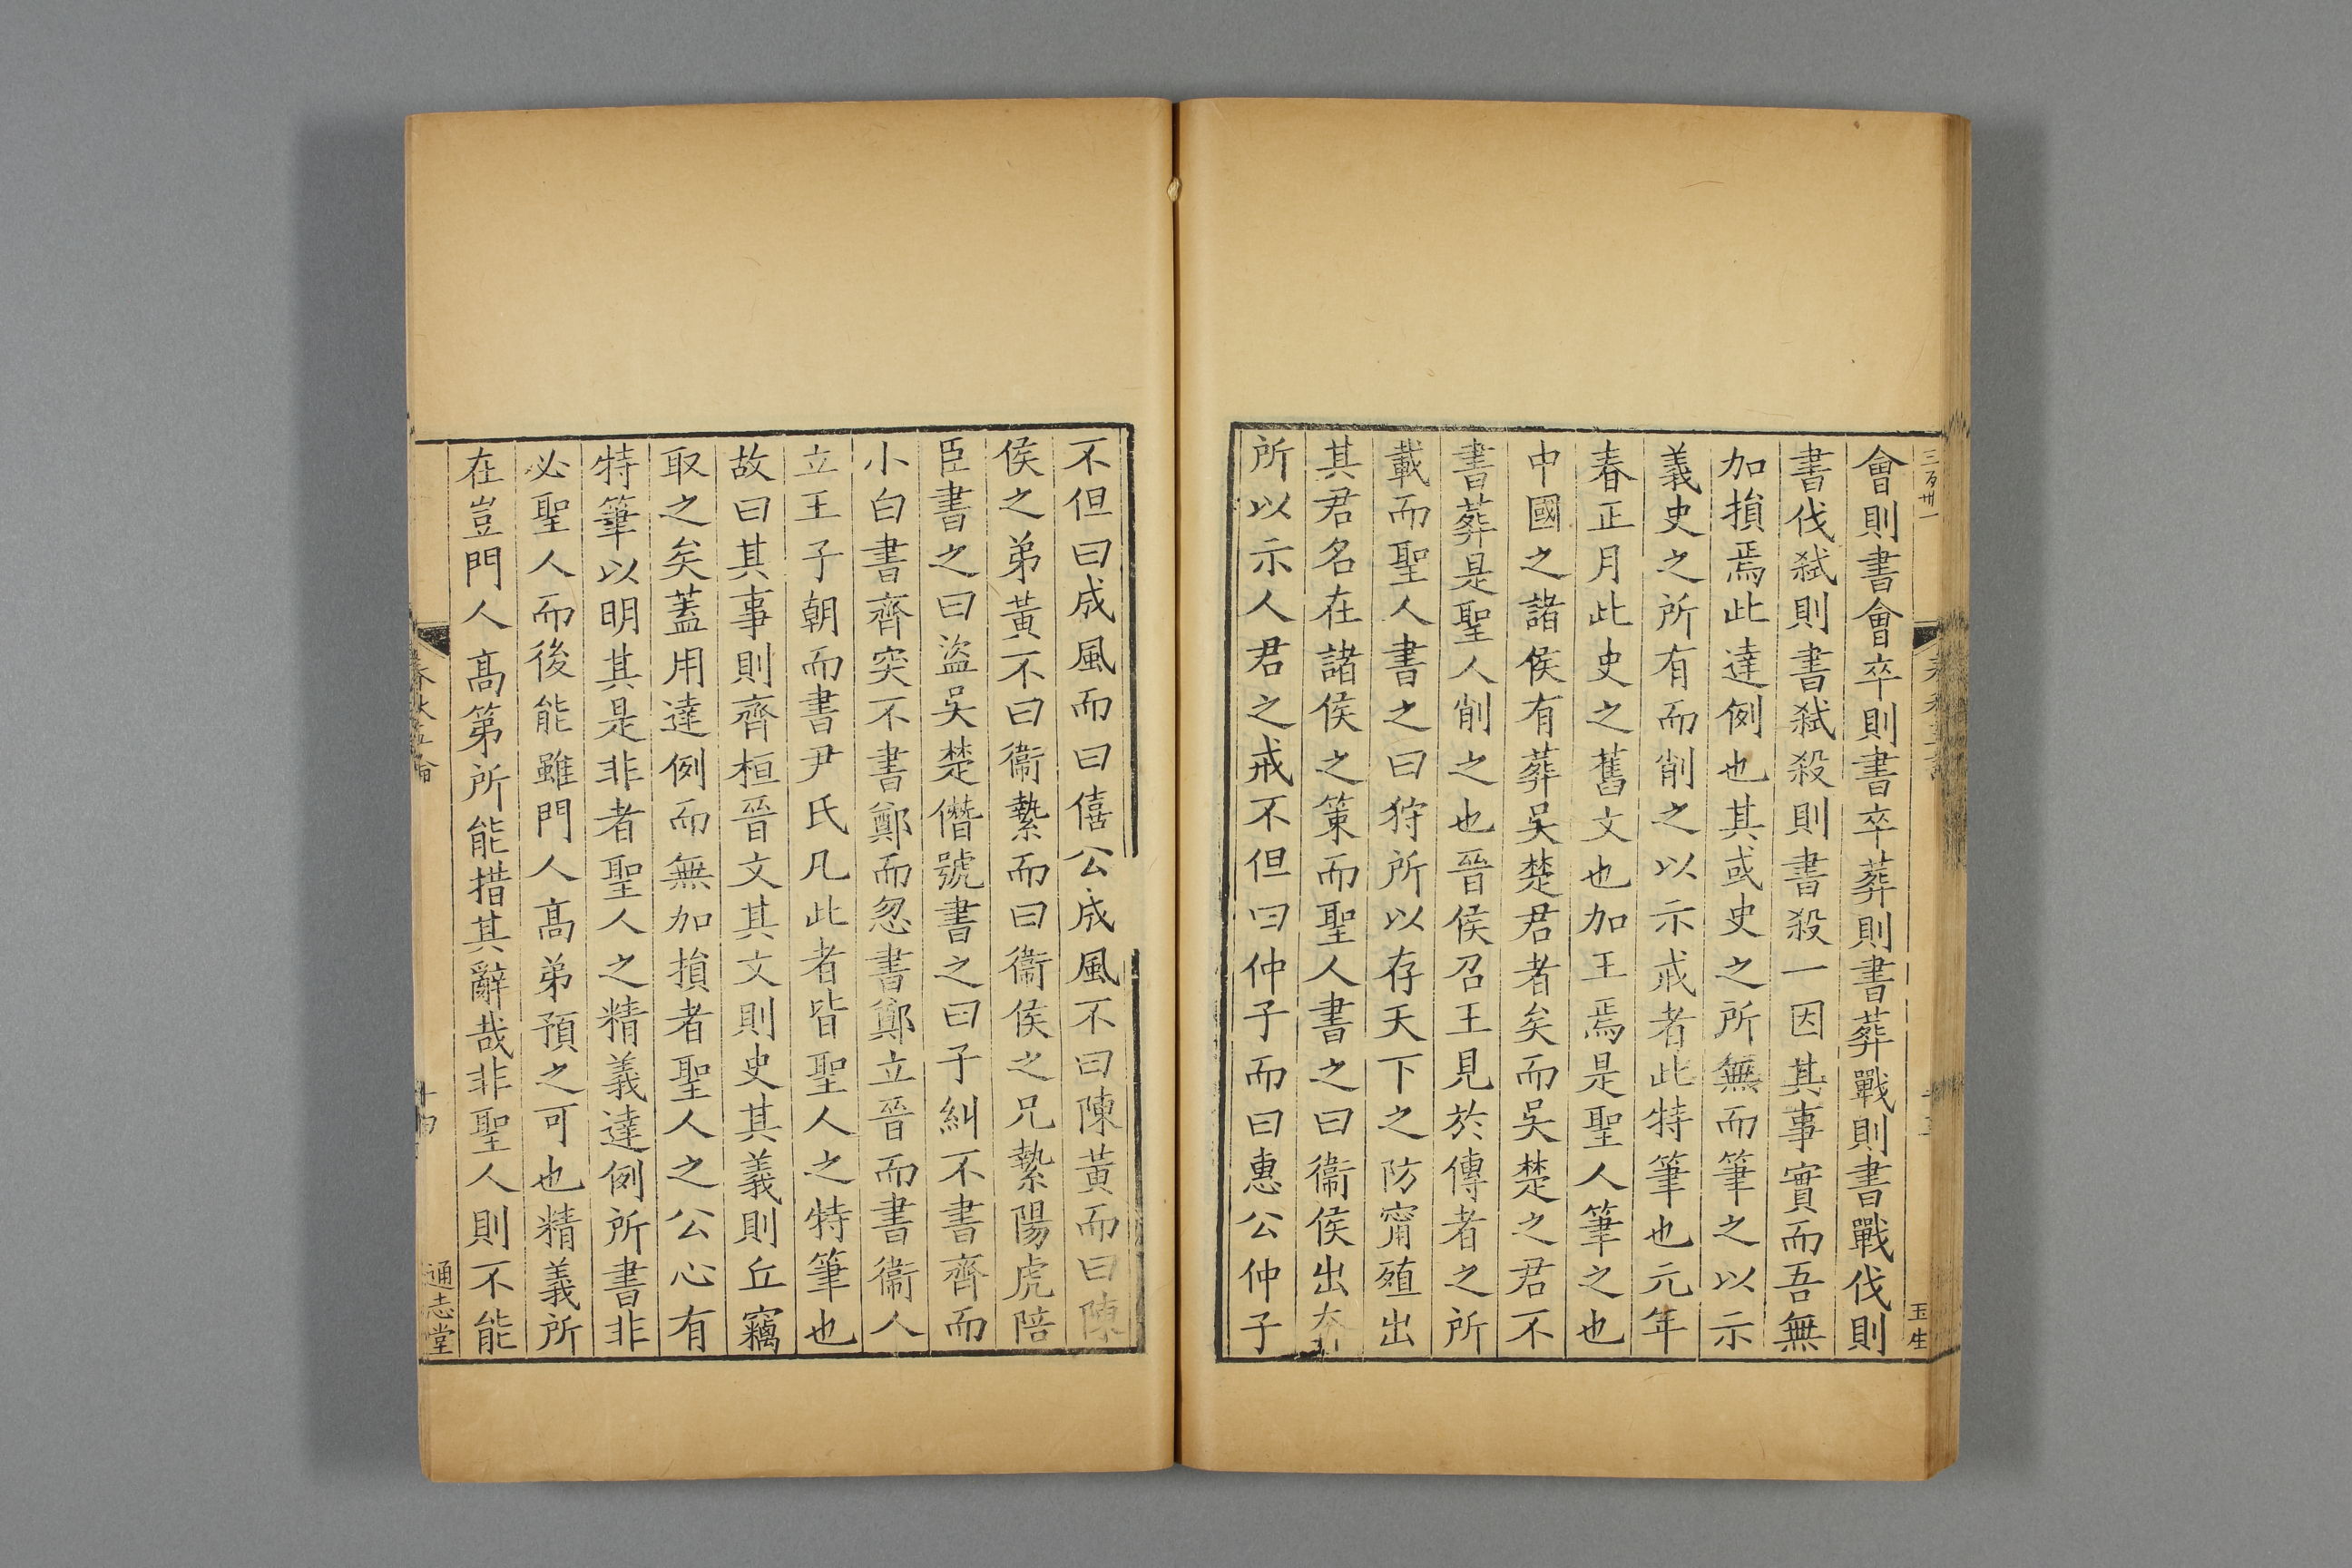 三百卅一
玉生
會則書會卒則書卒葬則書葬戰則書戰伐則
書伐弑則書弑殺則書殺一因其事實而吾無
加損焉此達例也其或史之所無而筆之以示
義史之所有而削之以示戒者此特筆也元年
春正月此史之舊文也加王焉是聖人筆之也
中國之諸侯有葬吳楚君者矣而吳楚之君不
書葬是聖人削之也晉侯召王見於傳者之所
載而聖人書之曰狩所以存天下之防甯殖出
其君名在諸侯之策而聖人書之曰衞侯出奔
所以示人君之戒不但曰仲子而曰惠公仲子
不但曰成風而曰僖公成風不曰陳黃而曰陳
侯之弟黃不曰衞縶而曰衞侯之兄縶陽虎陪
臣書之曰盜吳楚僭號書之曰子糾不書齊而
小白書齊突不書鄭而忽書鄭立晉而書衞人
立王子朝而書尹氏凡此者皆聖人之特筆也
故曰其事則齊桓晉文其文則史其義則丘竊
取之矣蓋用達例而無加損者聖人之公心有
特筆以明其是非者聖人之精義達例所書非
必聖人而後能雖門人高弟預之可也精義所
在豈門人高第所能措其辭哉非聖人則不能
春秋五論
十四
通志堂